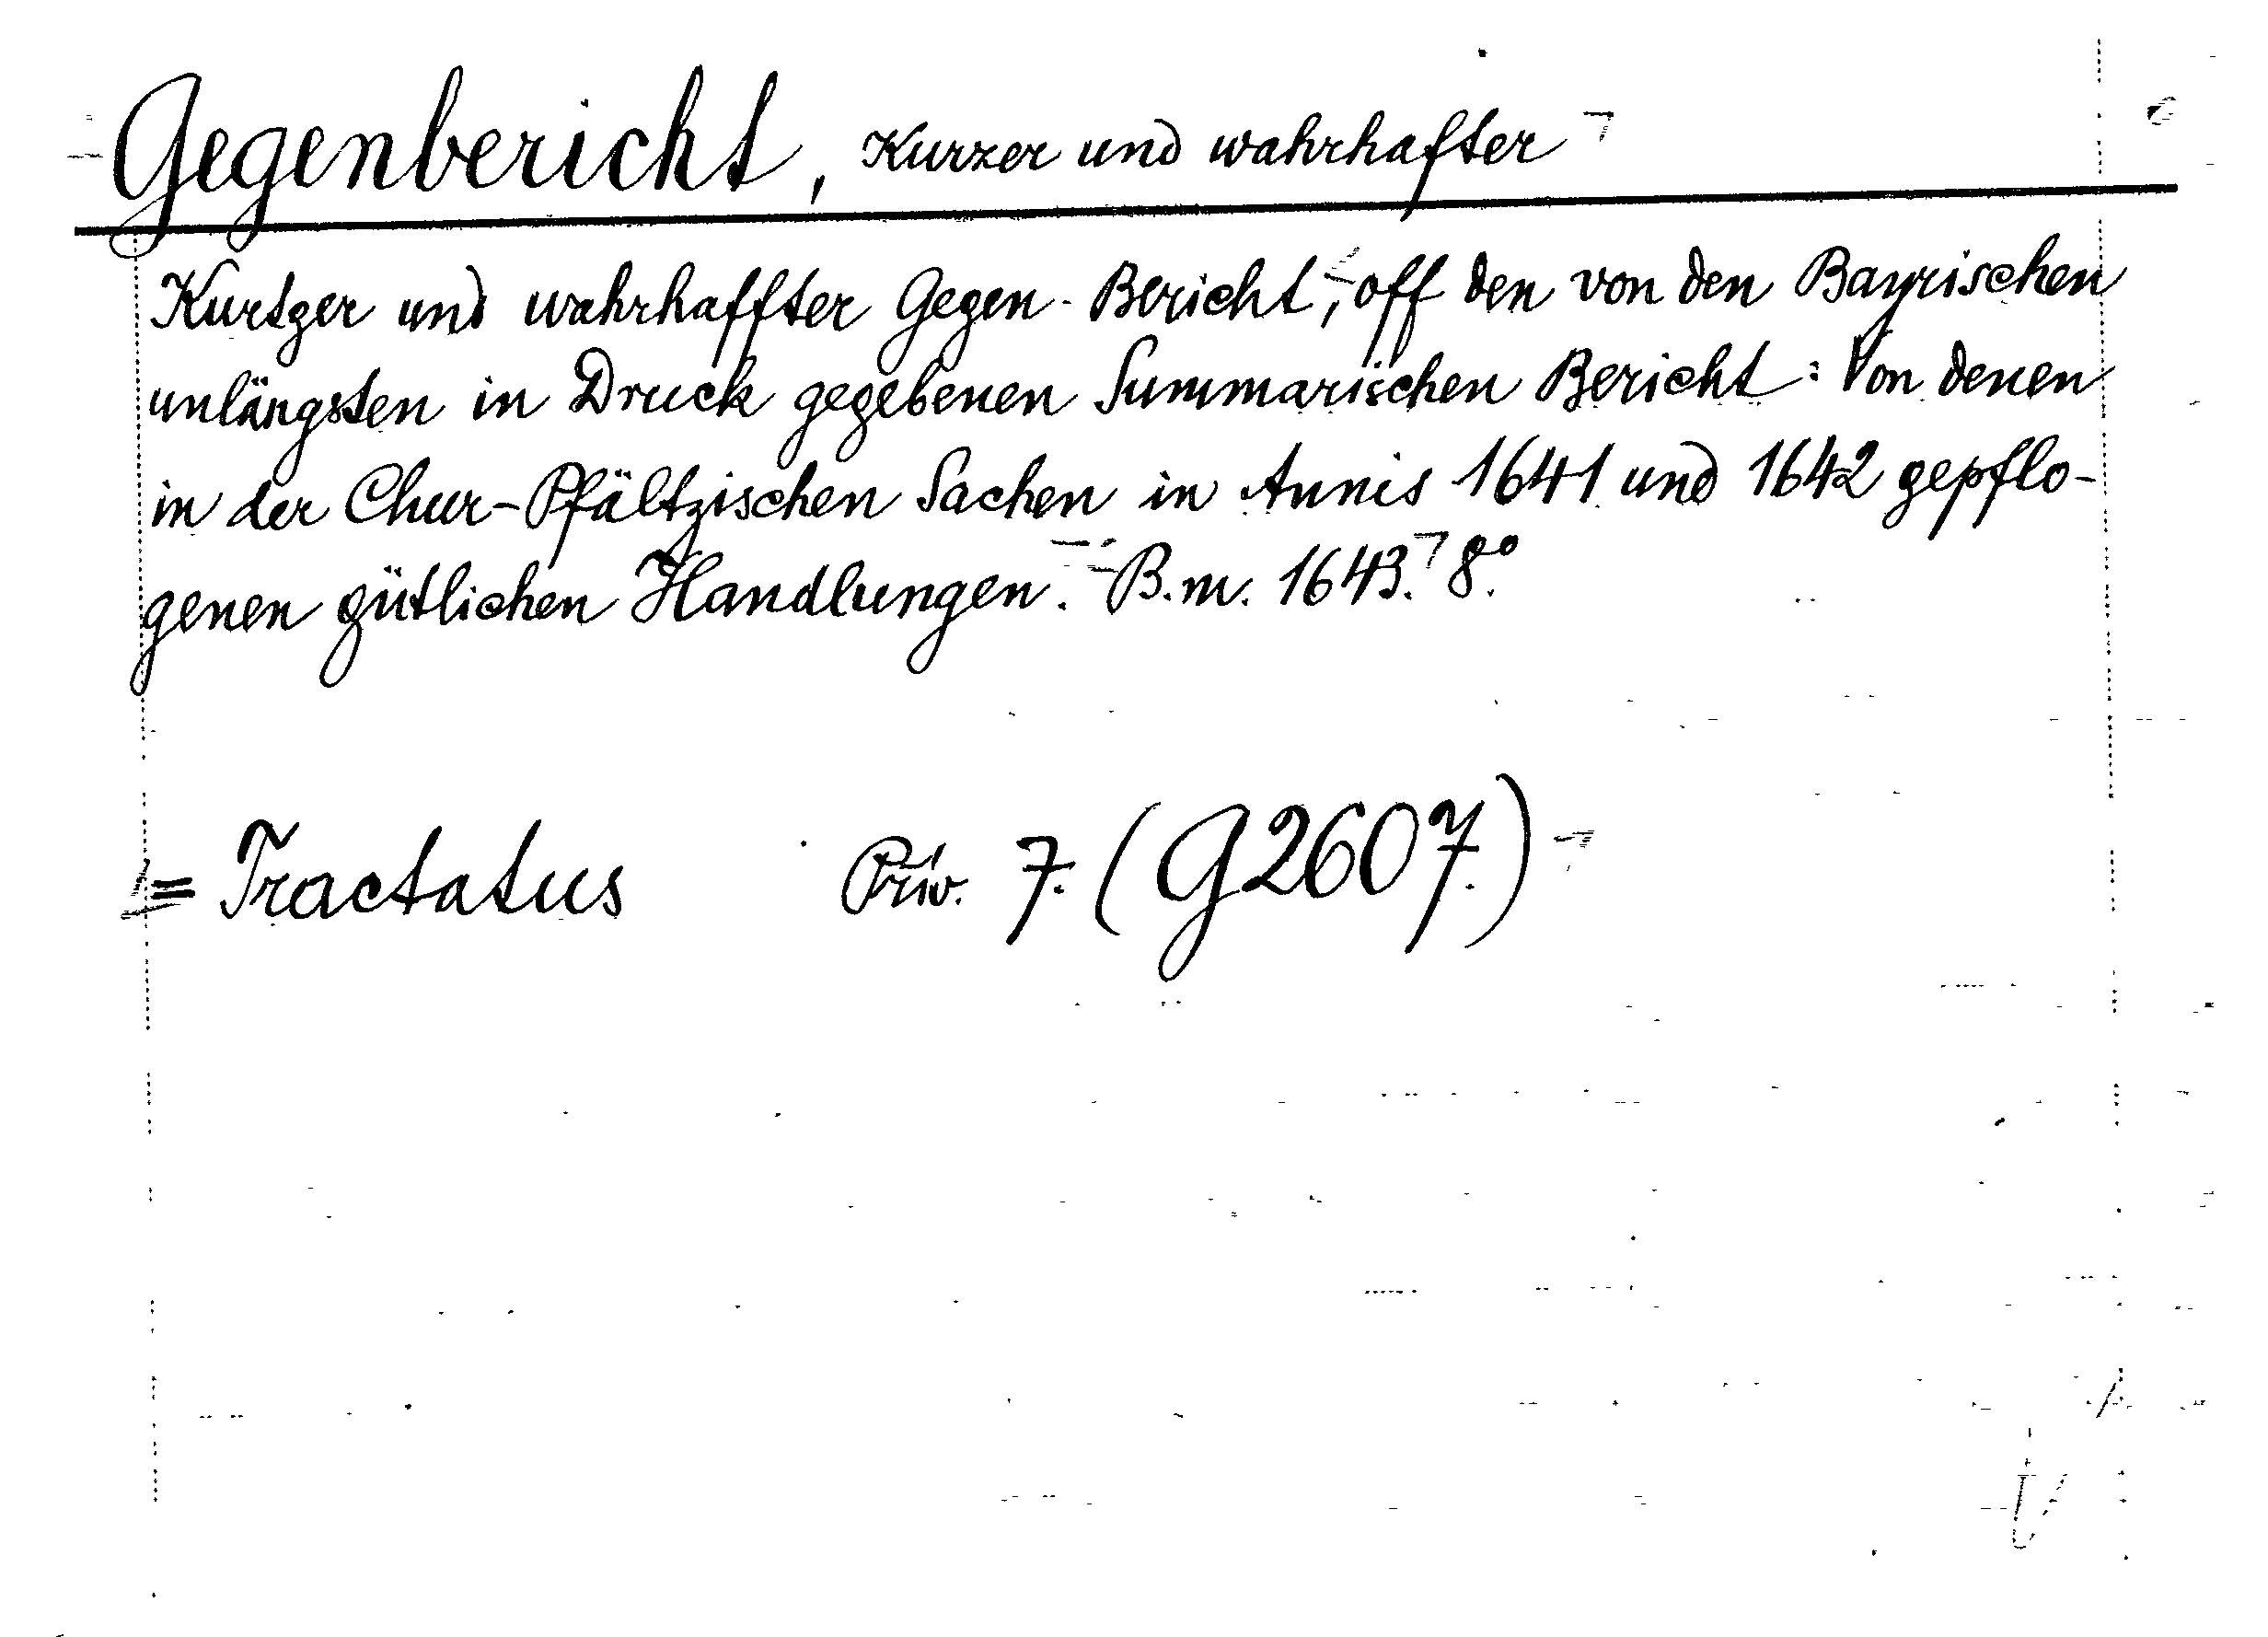 Gegenbericht, Kurzer und wahrhafter
Kurtzer und wahrhaffter Gegen-Bericht, off den von den Bayrischen
unlängsten in Druck gegebenen Summarischen Bericht: Von denen
in der Chur-Pfältzischen Sachen in Annis 1641 und 1642 gepflo-
genen gütlichen Handlungen. B.m. 1643. 8°.
= Tractatus Priv. 7. (G2607.)